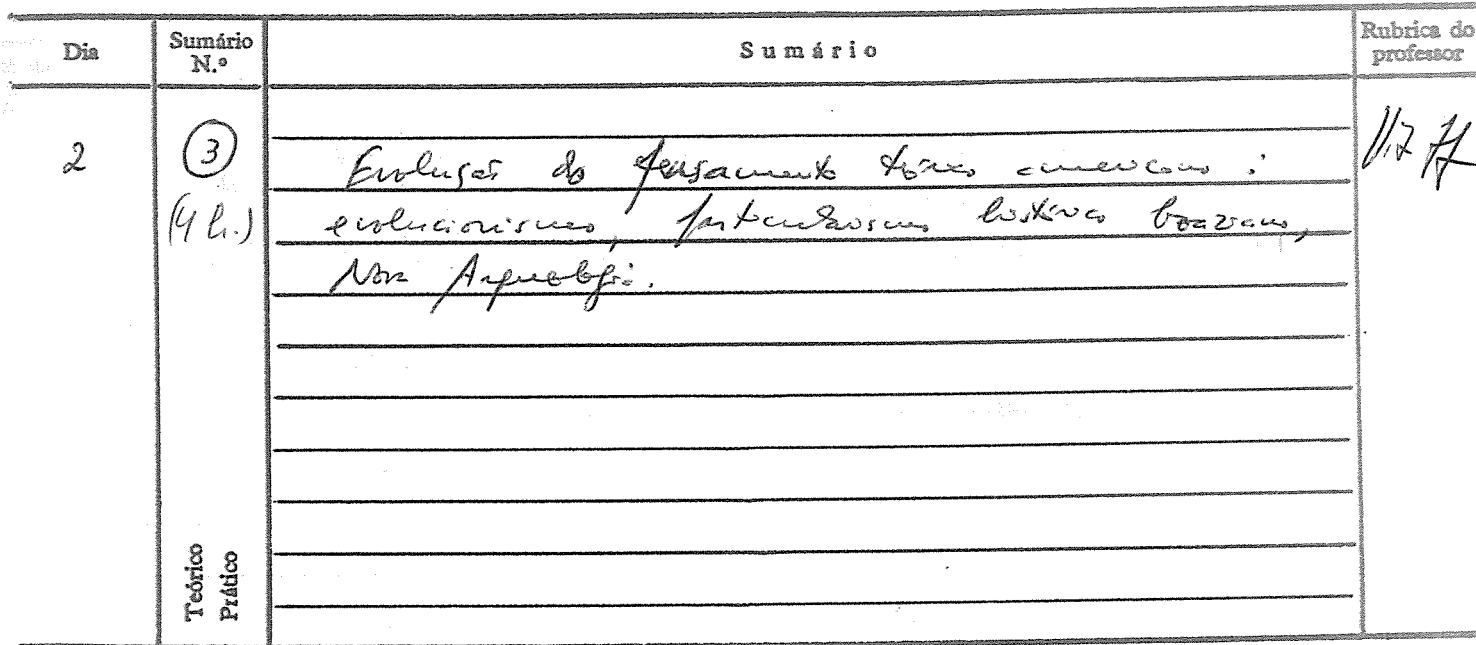 Dia
Sumário N.º
Sumário
Rubrica do professor
2
3
(4 h.)
Evolução do pensamento teórico americano:
evolucionismo, particularismo histórico boasiano,
Nova Arqueologia.
Teórico
Prático